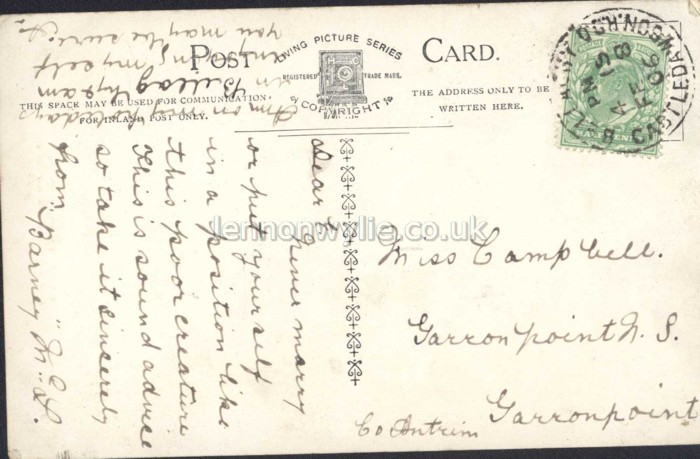 POST CARD.
LIVING PICTURE SERIES
REGISTERED TRADE MARK.
COPYRIGHT
THIS SPACE MAY BE USED FOR COMMUNICATION
FOR INLAND POST ONLY.
THE ADDRESS ONLY TO BE
WRITTEN HERE.
CASTLEDAWSON
4 15 PM
FE 8
06
Dear
Never marry
or put yourself
in a position like
this poor creature
This is sound advice
so take it sincerely
from
Barney
am on my holidays
in Bellaghy &am
enjoying myself
you may be sure
Miss Campbell.
Garronpoint N. S.
Garronpoint
Co Antrim
lennonwylie.co.uk